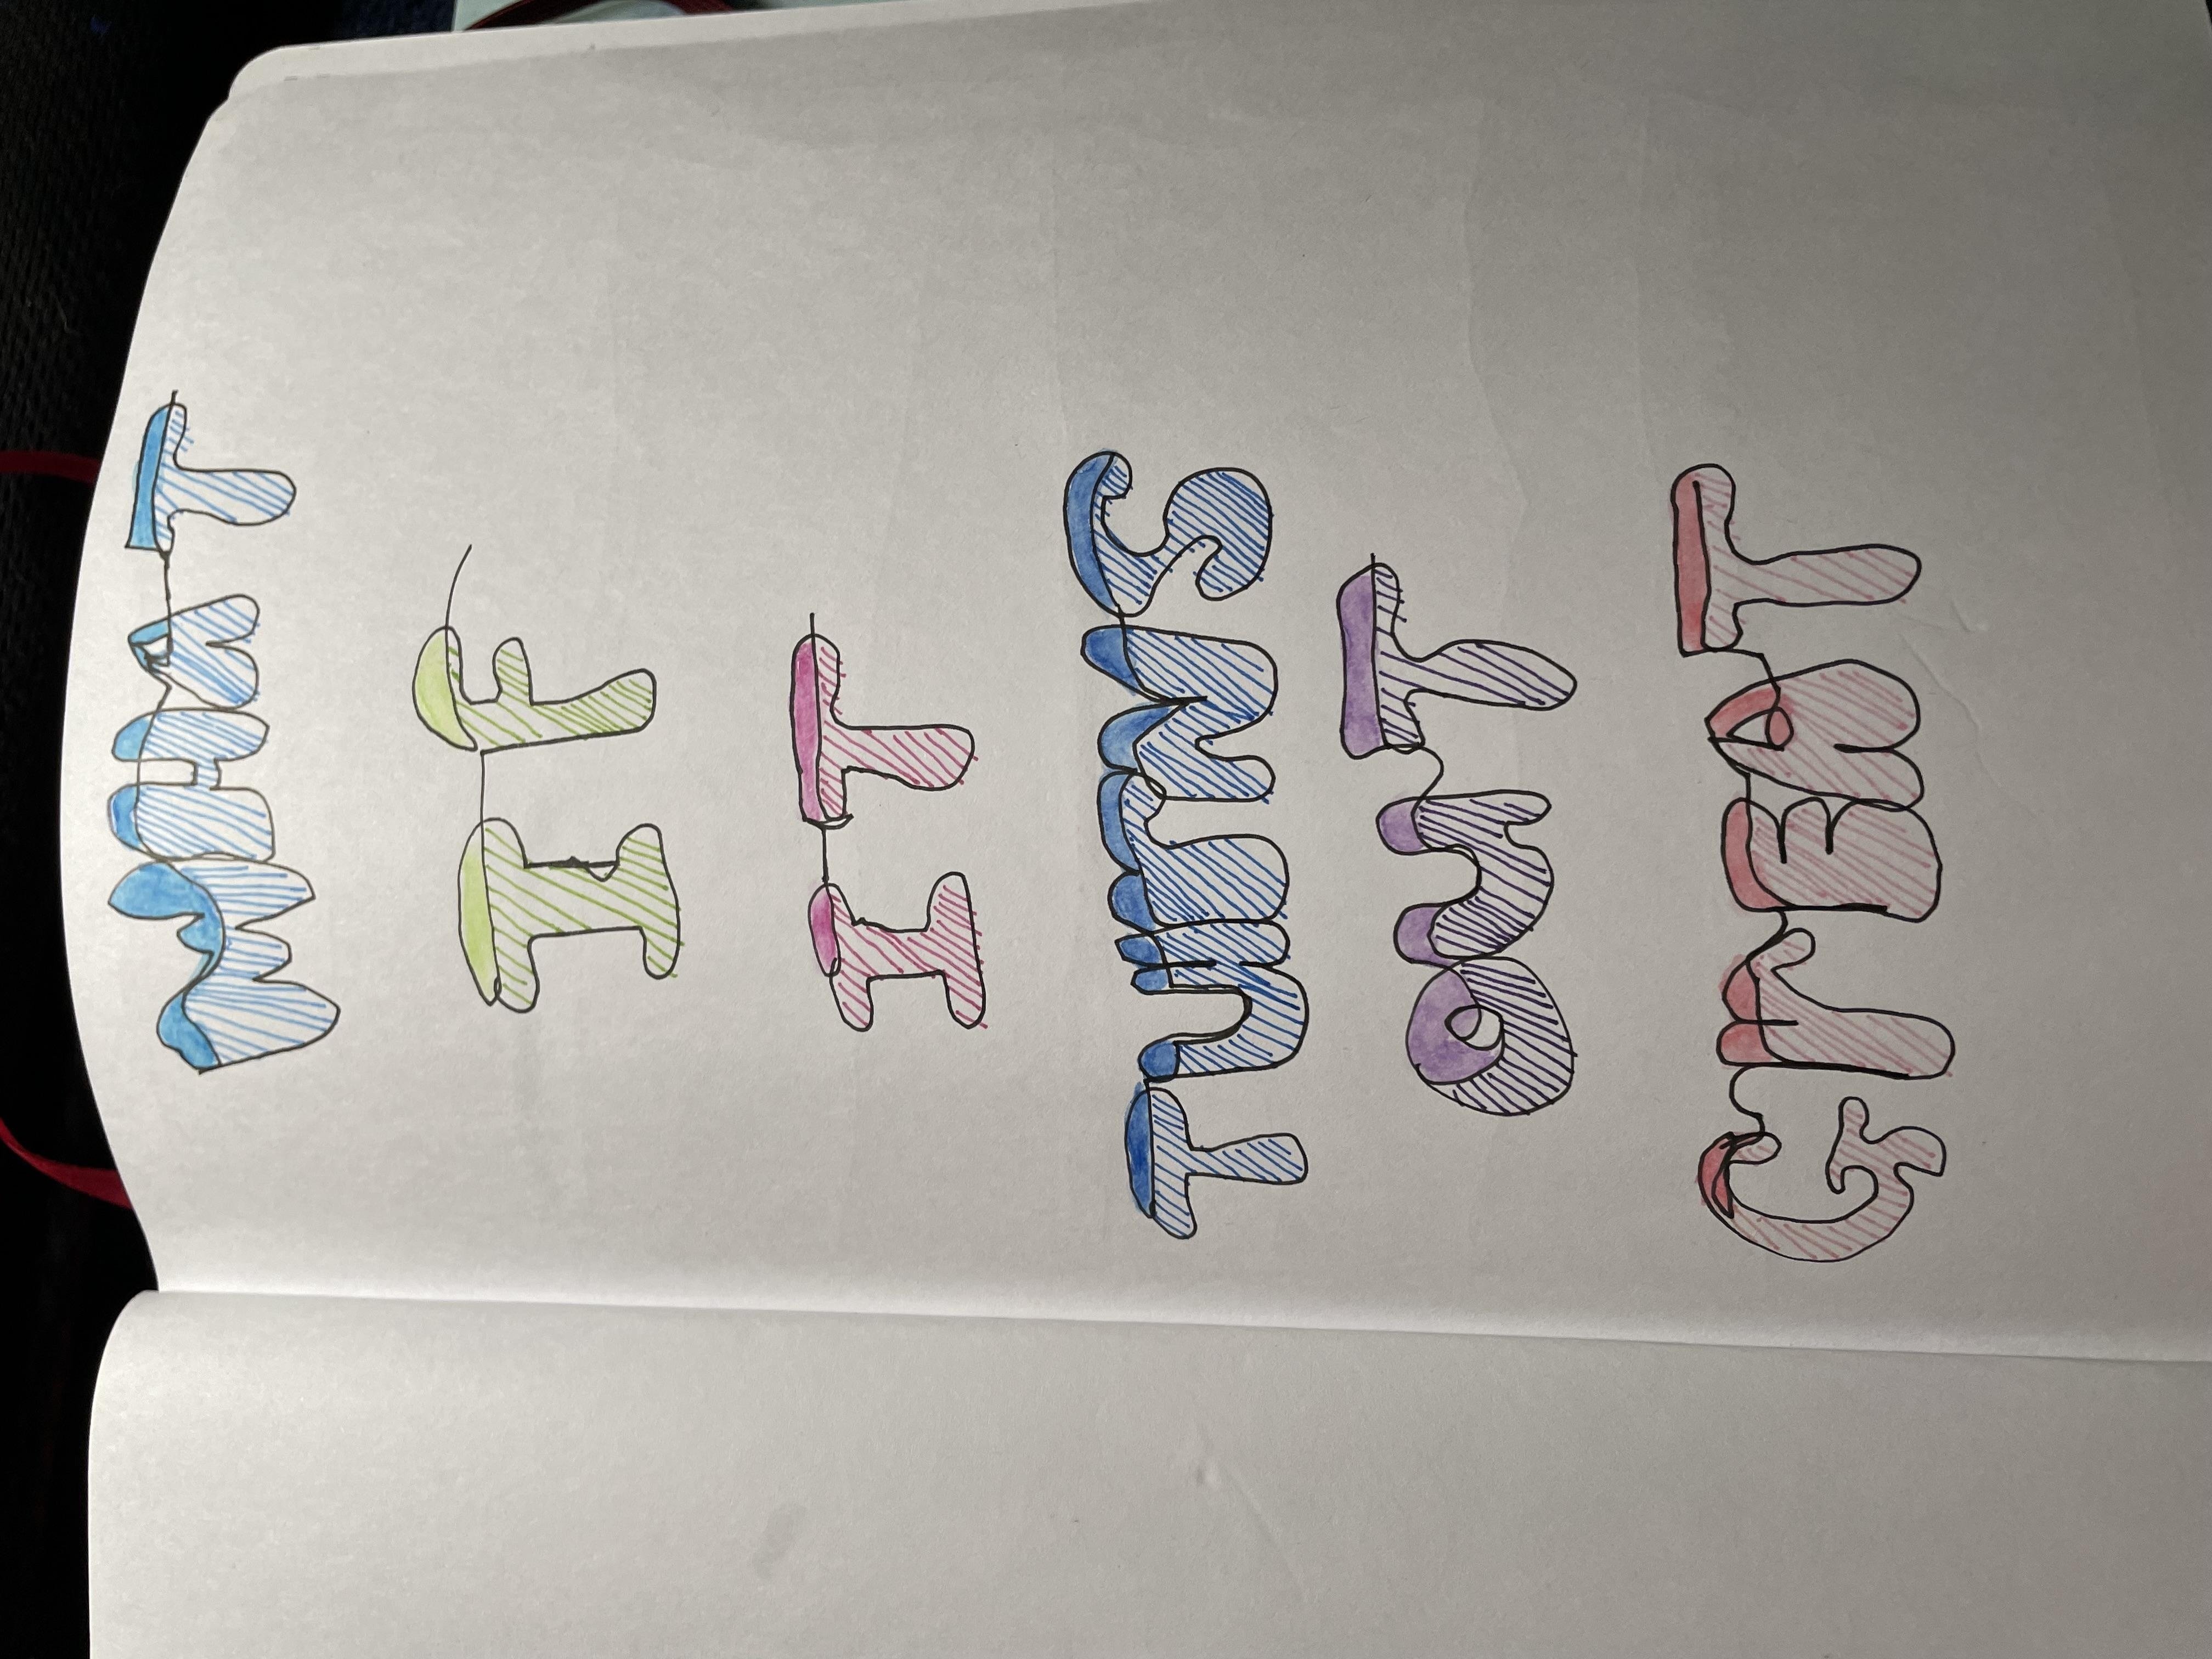 WHAT
IF
IT
TUrNS
OUT
GrEAT